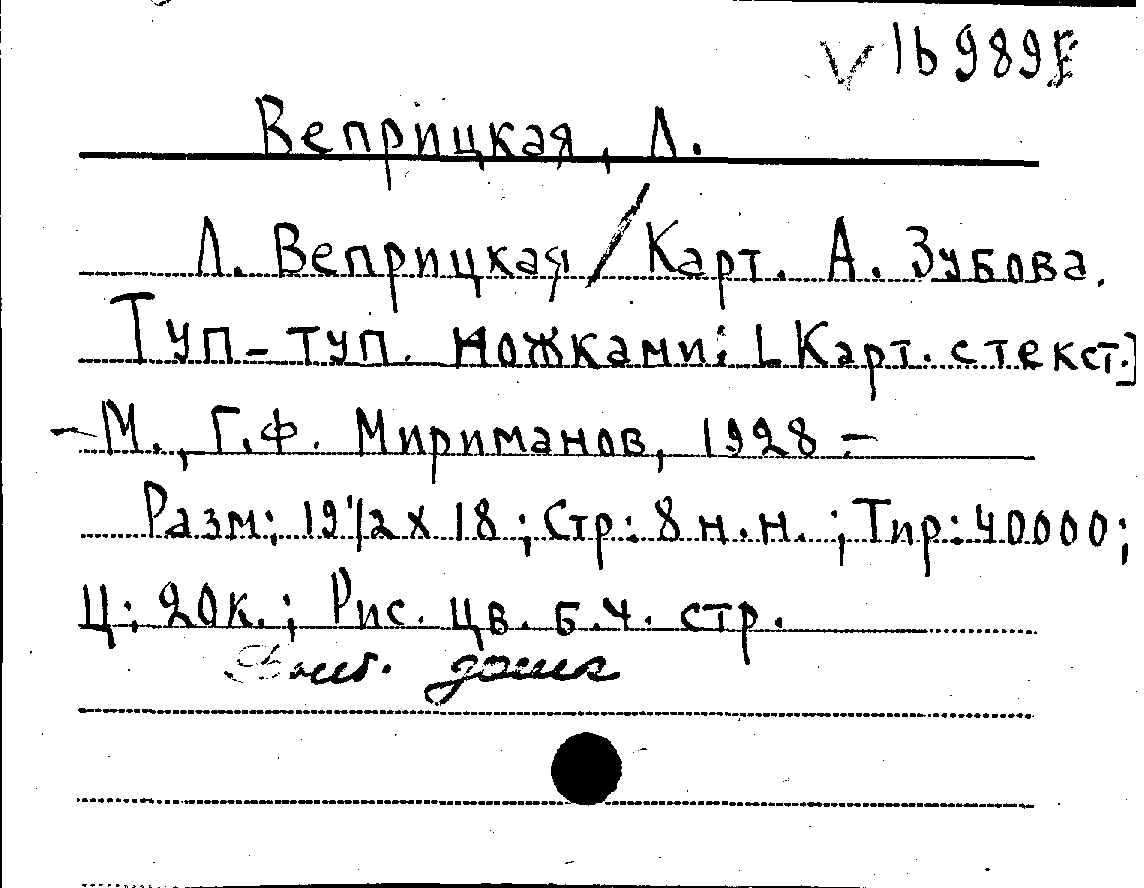 V 1б 989
Веприцкая, Л.
Л. Веприцкая / Карт. А. Зубова.
Туп-туп. ножками: [Карт. с текст.]
- М., Г.Ф. Мириманов, 1928 -
Разм: 19 1/2 х 18; Стр: 8 н.н.; Тир: 40000;
Ц: 20к.; Рис. цв. б.ч. стр.